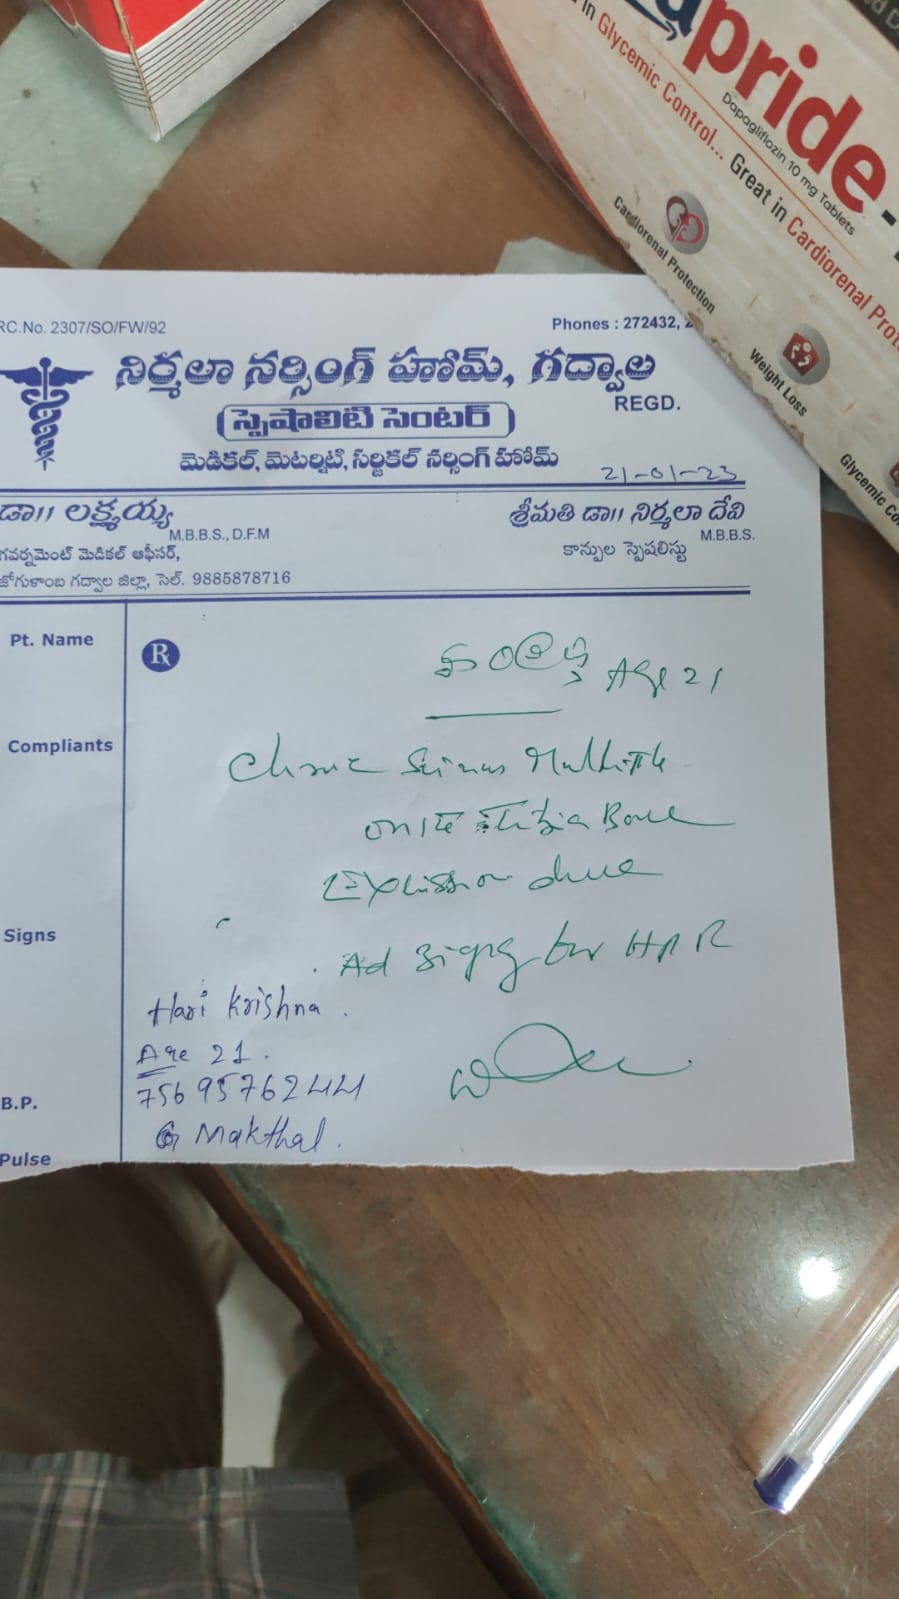 apride-
Dapagliflozin 10 mg Tablets
in Glycemic Control... Great in Cardiorenal Prot
Cardiorenal Protection
Weight Loss
Glycemic Co
RC.No. 2307/SO/FW/92
Phones : 272432, 2
నిర్మలా నర్సింగ్ హోమ్, గద్వాల
REGD.
స్పెషాలిటి సెంటర్
మెడికల్, మెటర్నిటి, సర్జికల్ నర్సింగ్ హోమ్
21-01-23
డా।। లక్ష్మయ్య
M.B.B.S., D.F.M
గవర్నమెంట్ మెడికల్ ఆఫీసర్,
జోగుళాంబ గద్వాల జిల్లా, సెల్. 9885878716
శ్రీమతి డా।। నిర్మలా దేవి
M.B.B.S.
కాన్పుల స్పెషలిస్టు
Pt. Name
Rx
Age 21
Compliants
Sinus Multiple
Bone
done
Signs
Ad for
Hari Krishna.
Age 21.
7569576244
G Makthal.
B.P.
Pulse